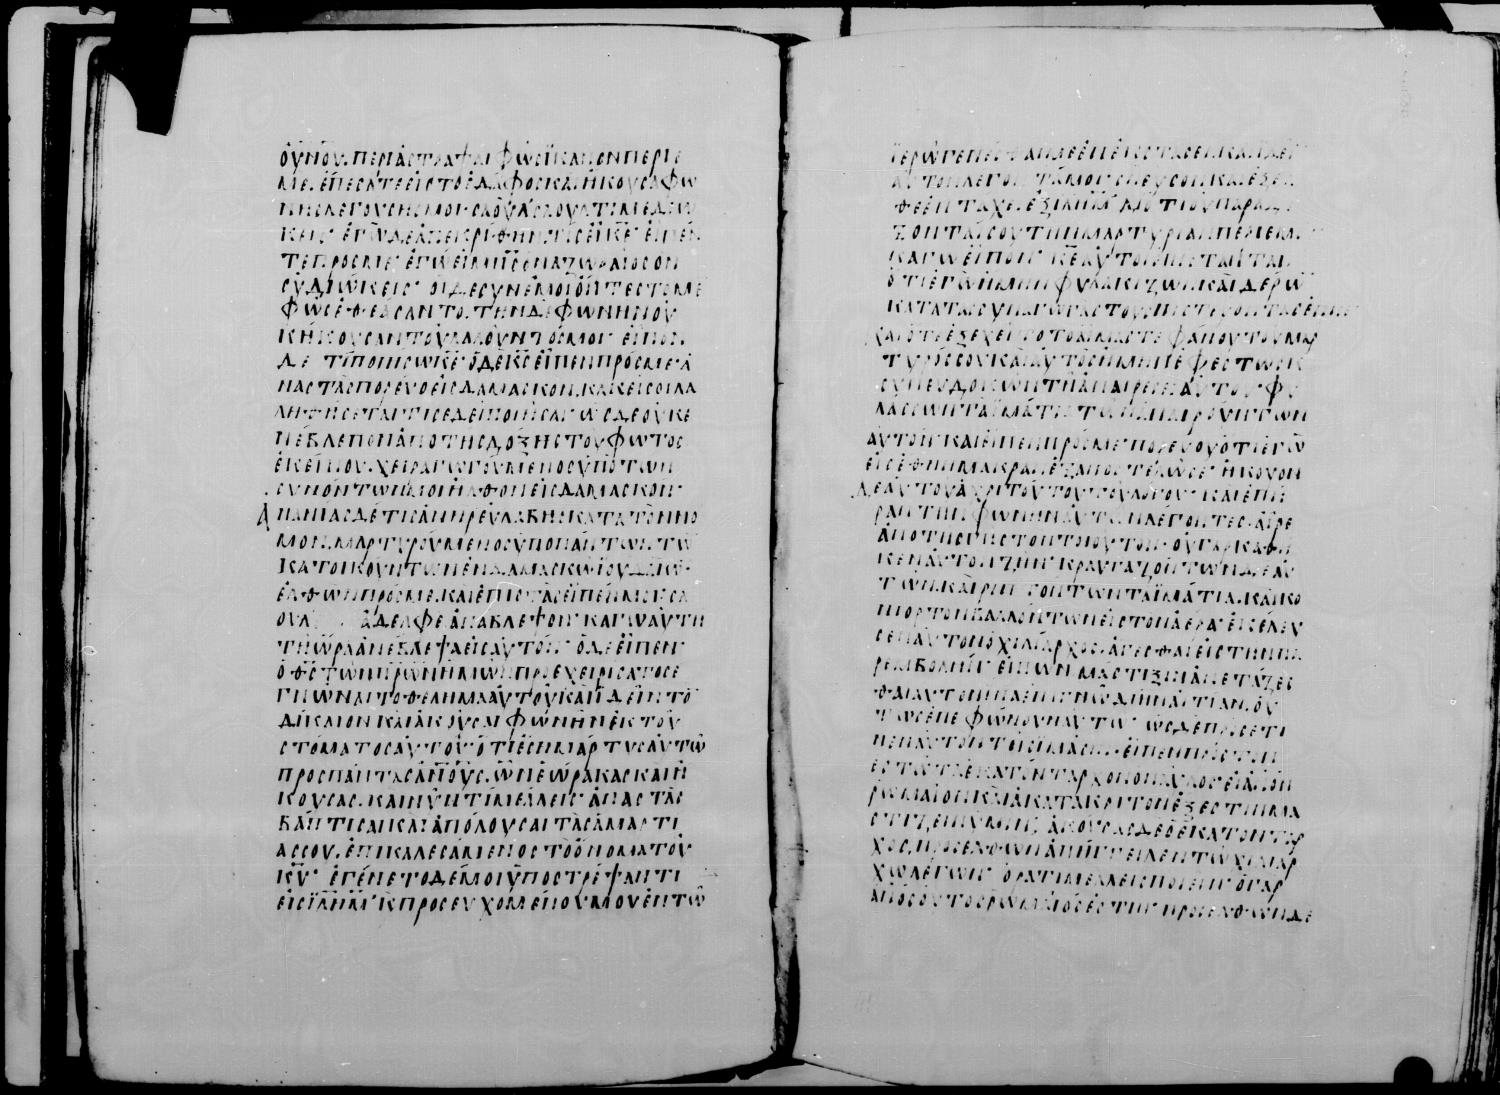 ὀυνου. περιαστραψαι φῶς ϊκανον περι ε
με. ἔπεσα τε εις το ἔδαφος και ἤκουσα φω
νης λεγουσης μοι· σαοὺλ σαουλ τί με διώ
κεις· ἐγὼ δὲ ἀπεκρίθην· τίς εἶ κ̅ε̅· εἶπέν
τε προς με· ἐγώ εἰμι ι̅ς̅ ὁ ναζωραῖος ὃν
συ διώκεις· οἱ δὲ συν ἐμοὶ ὄντες το με
φῶς ἐθεάσαντο. την δὲ φωνην ου
κ ἤκουσαν του λαλουντός μοι· εἶπον
δε τί ποιησω κ̅ε̅· ὁ δὲ κ̅ς̅ εἶπεν πρός με· ἀ
ναστὰς πορευου εις δαμασκον. κακει σοι λα
ληθησεται τι σε δει ποιησαι· ὡς δε οὐκ ἐ
νέβλεπον ἀπο της δοξης του φωτος
ἐκείνου. χειραγωγουμενος ὑπὸ των
συνόντων μοι ἦλθον εις δαμασκον·
Ἀνανιας δέ τις ἀνηρ ἐυλαβης κατα τὸν νό
μον. μαρτυρουμενος ὑπο παντων τῶ
κατοικουντων ἐν δαμασκῶ ϊουδαίων·
ἐλθων προς με. και ἐπιστας εἶπέν μοι· σα
ουλ ἀδελφε ἀναβλεψον· καγω αυτη
τη ὥρα ἀνέβλεψα εἰς αὐτον· ὁ δὲ εἶπεν·
ὁ θ̅ς̅ τῶν π̅ρ̅ων ἡμῶν προεχειρίσατο σε
γνῶναι το θελημα αὐτου και ἰδεῖν τὸ
δίκαιον και ἀκουσαι φωνην ἐκ του
στόματος αὐτου· ὅτι ἔση μάρτυς αὐτῶ
προς παντας α̅ν̅ους. ὧν ἑώρακας και ἤ
κουσας. και νυν τί μελλεις· ἀναστὰς
βάπτισαι και ἀπόλουσαι τὰς ἁμαρτί
ας σου. ἐπικαλεσάμενος τὸ ὄνομα του
κ̅υ̅· ἐγένετο δέ μοι ὑποστρέψαντι
εἰς ϊ̅λ̅η̅μ̅ κ̀ προσευχομενου μου ἐν τῶ
ϊερῶ γενέσθαι με ἐν ἐκστασει. και ἰδεῖ
αυτον λεγοντά μοι· σπευσον και ἔξελ
θε ἐν ταχει ἐξ ϊ̅λ̅η̅μ̅· διότι ου παραδέ
ξονταί σου την μαρτυρίαν περι ἐμου
καγω εἶπον· κ̅ε̅ αὐτοι ἐπίστανται
ὅτι ἐγὼ ἤμην φυλακίζων. και δέρω
κατα τας συναγωγὰς τους πιστευοντας ἐπι σε
και ὅτε ἐξεχεῖτο το αἷμα στεφάνου του μαρ
τυρός σου και αὐτος ἤμην ἐφεστως κ
συνευδοκων τη ἀναιρεσει αὐτου· φυ
λασσων τα ϊμάτια των ἀναιρουντων
αὐτον· και εἶπεν προς με· πορευου ὅτι ἐγὼ
εἰς ἔθνη μακραν ἐξαποστελῶ σε· ἤκουον
δε αὐτου ἄχρι τουτου του λογου· και ἐπῆ
ραν την φωνην αὐτων λέγοντες. αἶρε
ἀπο της γης τον τοιουτον· οὐ γαρ καθῆ
κεν αὐτον ζην· κραυγαζοντων δε αυ
των. και ριπτούντων τα ϊμάτια. και κο
νιορτον βαλλόντων εἰς τον ἀερα· ἐκελευ
σεν αὐτον ὁ χιλίαρχος. ἄγεσθαι εἰς την πα
ρεμβολήν· εἰπων μάστιξιν ἀνετάζεσ
θαι αὐτον ἵνα ἐπιγνῶ δι ἣν αἰτίαν. ου
τως ἐπεφώνουν αὐτω· ὡς δε προέτει
νεν αὐτον τοις ϊμασιν. εἶπεν προς τον
ἑστῶτα ἑκατόνταρχον ὁ παυλος. εἰ ἄνον
ρωμαῖον και ἀκατακριτον ἔξεστιν μα
στίζειν ὑμῖν; ἀκουσας δε ὁ ἑκατονταρ
χος. προσελθων ἀπήγγειλεν τῶ χιλιάρ
χω λεγων· ὅρα τί μέλλεις ποιειν· ὁ γαρ
ἄ̅ν̅ο̅ς̅ οὗτος ρωμαῖός ἐστιν· προσελθων δε